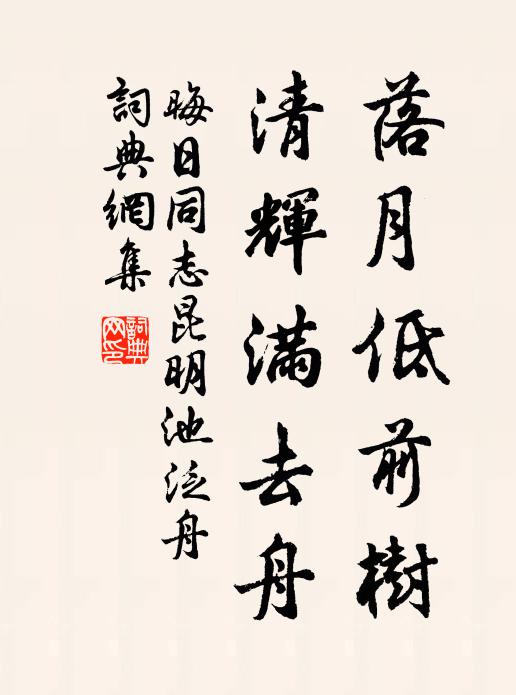 落月低前樹
清輝滿去舟
晦日同志昆明池泛舟
詞典網集
詞典網印